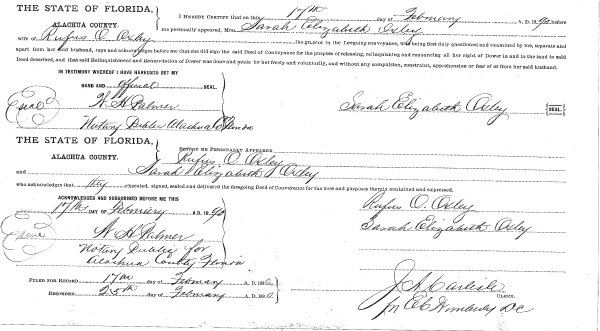 THE STATE OF FLORIDA,
ALACHUA COUNTY.
I HEREBY CERTIFY that on this 17th day of February A. D. 1890 before
me personally appeared, Mrs. Sarah Elizabeth Oxley
wife of Rufus O. Oxley the grantor in the foregoing conveyance, who being first duly questioned and examined by me, separate and
apart from her said husband, says and acknowledges before me that she did sign the said Deed of Conveyance for the purpose of releasing, relinquishing and renouncing all her right of Dower in and to the land in said
Deed described, and that said Relinquishment and Renunciation of Dower was done and made by her freely and voluntarily, and without any compulsion, constraint, apprehension or fear of or from her said husband.
IN TESTIMONY WHEREOF I HAVE HEREUNTO SET MY
HAND AND official SEAL.
Seal W. H. Palmer
Notary Public Alachua Co Florida
Sarah Elizabeth Oxley {SEAL}
THE STATE OF FLORIDA,
ALACHUA COUNTY.
BEFORE ME PERSONALLY APPEARED
Rufus O. Oxley
and Sarah Elizabeth Oxley
who acknowledges that they executed, signed, sealed and delivered the foregoing Deed of Conveyance for the uses and purposes therein contained and expressed.
ACKNOWLEDGED AND SUBSCRIBED BEFORE ME THIS
17th DAY OF February A. D. 1890
Rufus O. Oxley
Sarah Elizabeth Oxley
Seal W H Palmer
Notary Public for
Alachua County Florida
FILED FOR RECORD 17th day of February A. D. 189
RECORDED 25th day of February A. D. 189
J A Carlisle
CLERK.
DC